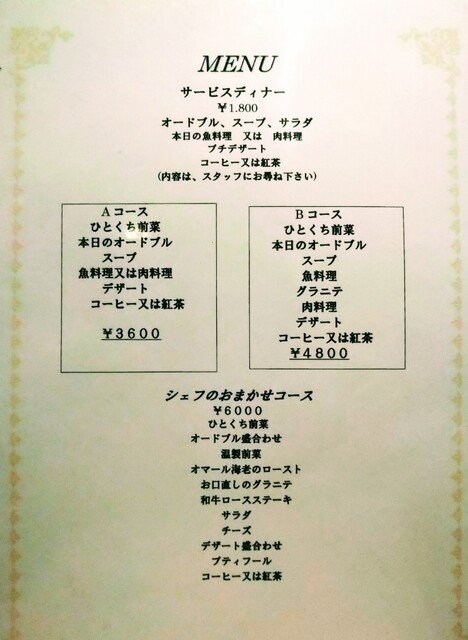 MENU
サービスディナー
￥1.800
オードブル、スープ、サラダ
本日の魚料理　又は　肉料理
プチデザート
コーヒー又は紅茶
(内容は、スタッフにお尋ね下さい)
Aコース
ひとくち前菜
本日のオードブル
スープ
魚料理又は肉料理
デザート
コーヒー又は紅茶
￥3600
Bコース
ひとくち前菜
本日のオードブル
スープ
魚料理
グラニテ
肉料理
デザート
コーヒー又は紅茶
￥4800
シェフのおまかせコース
￥6000
ひとくち前菜
オードブル盛合わせ
温製前菜
オマール海老のロースト
お口直しのグラニテ
和牛ロースステーキ
サラダ
チーズ
デザート盛合わせ
プティフール
コーヒー又は紅茶